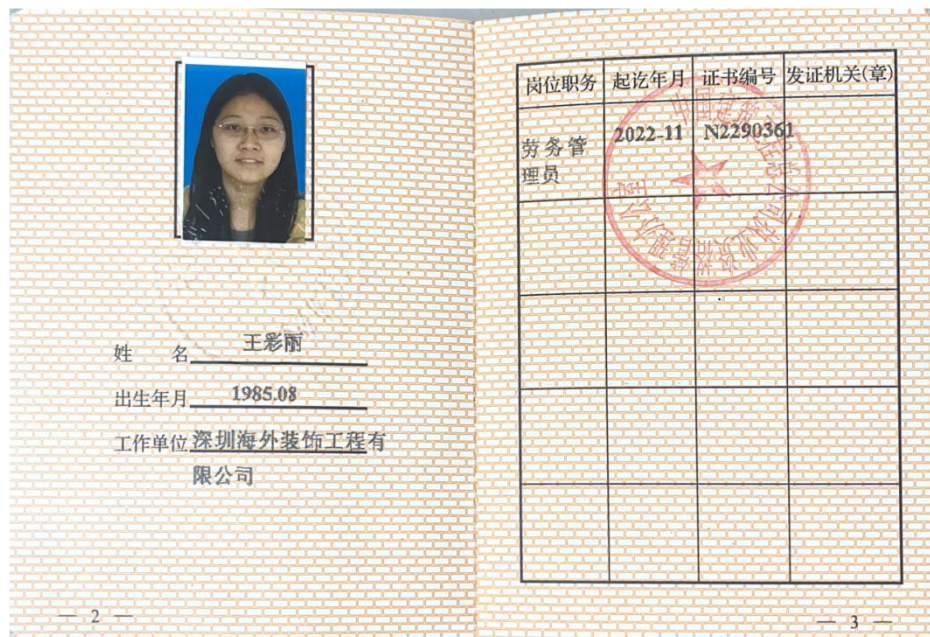 姓 名 王彩丽
出生年月 1985.08
工作单位 深圳海外装饰工程有
限公司
— 2 —
岗位职务 起讫年月 证书编号 发证机关(章)
劳务管 2022-11 N2290361
理员
— 3 —